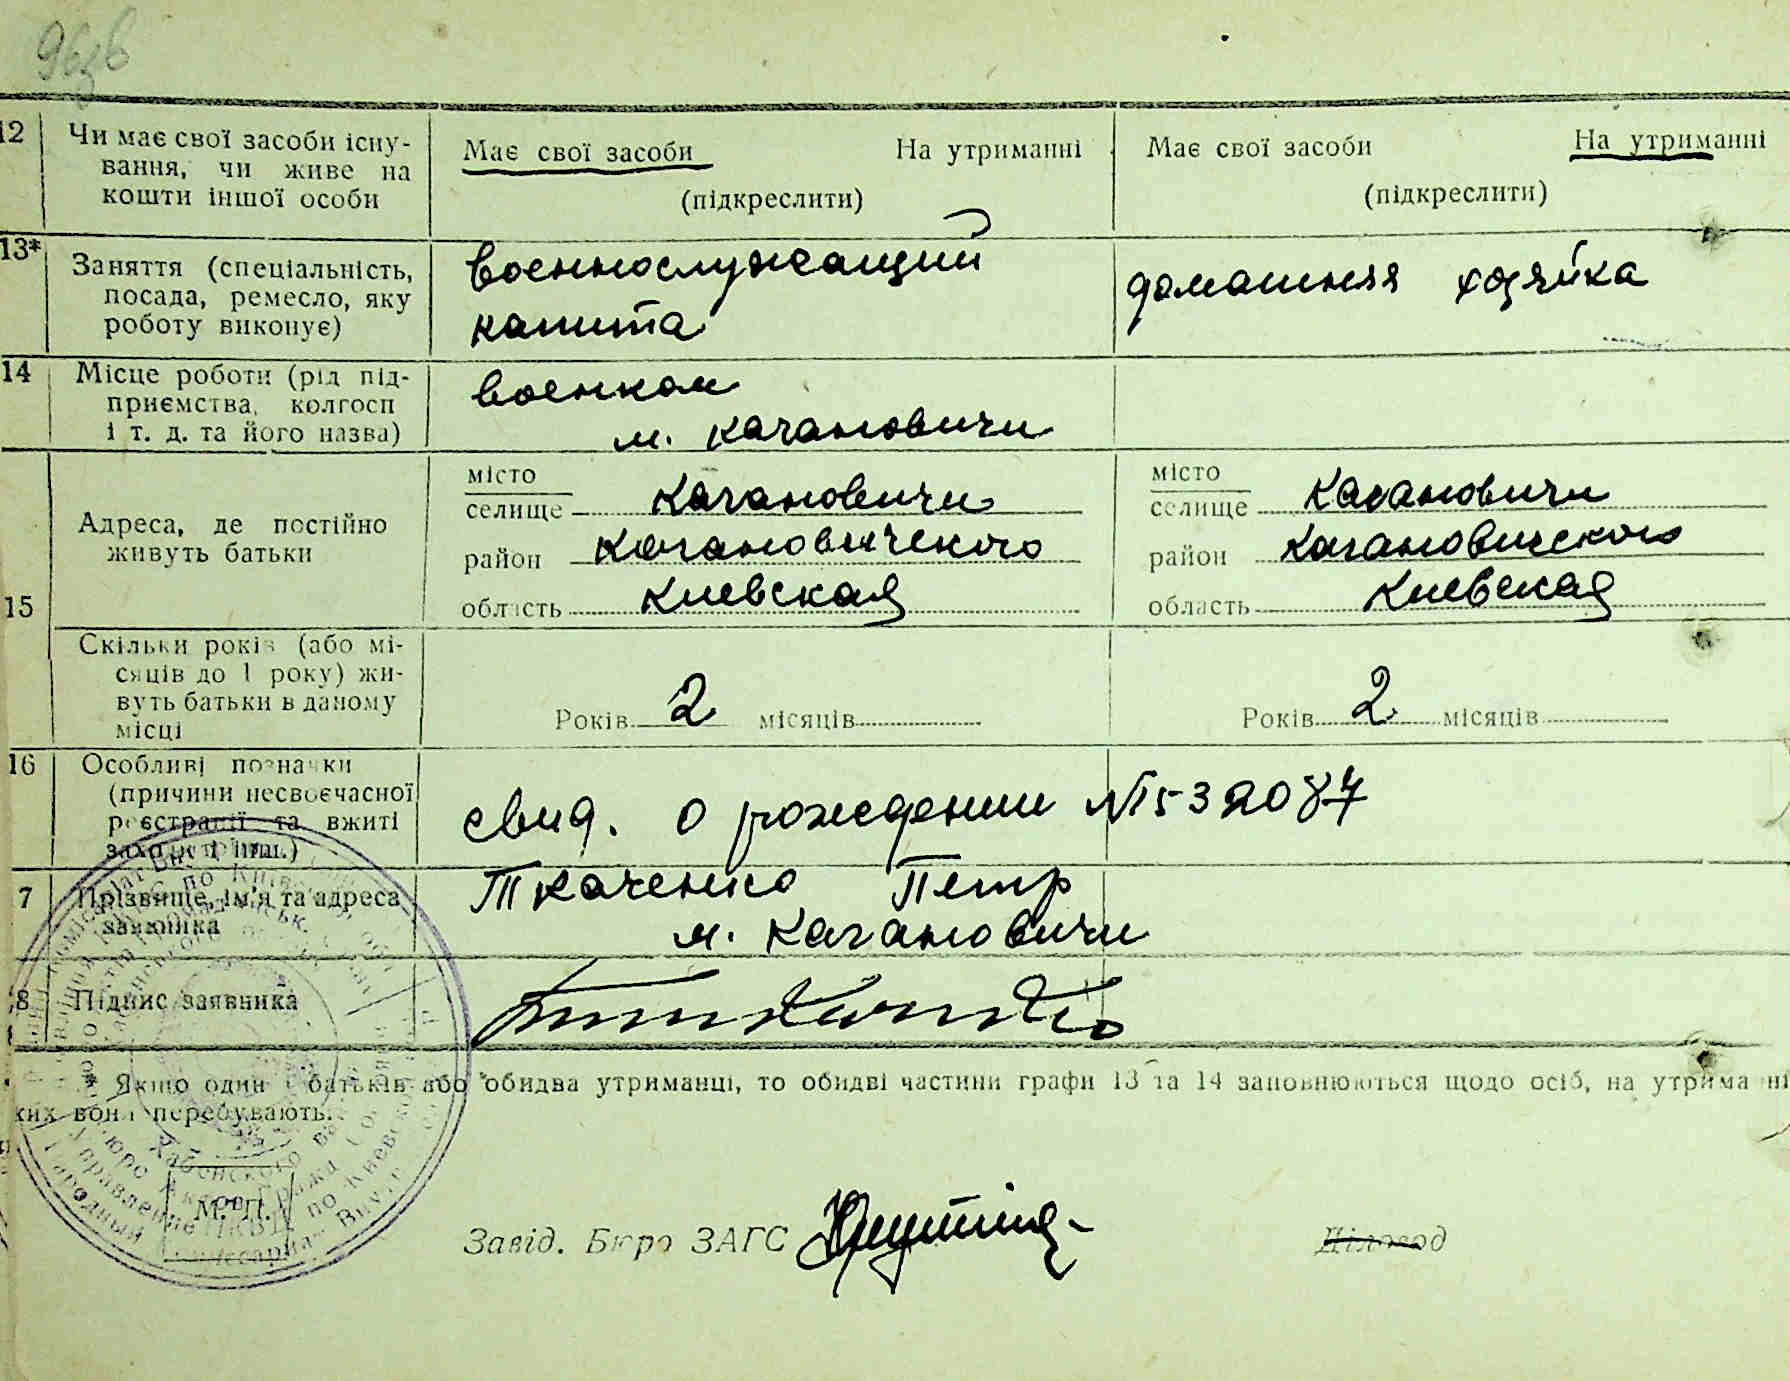 12 Чи має свої засоби існу-
вання, чи живе на
кошти іншої особи
Має свої засоби На утриманні
(підкреслити)
Має свої засоби На утриманні
(підкреслити)
13* Заняття (спеціальність,
посада, ремесло, яку
роботу виконує)
военнослужащий
капита
домашняя хозяйка
14 Місце роботи (рід під-
приємства, колгосп
і т. д. та його назва)
военком
м. Кагановичи
15 Адреса, де постійно
живуть батьки
місто
селище Кагановичи
район Кагановичского
область Киевская
місто
селище Кагановичи
район Кагановичского
область Киевская
Скільки років (або мі-
сяців до 1 року) жи-
вуть батьки в даному
місці
Років 2 місяців
Років 2 місяців
16 Особливі позначки
(причини несвоєчасної
реєстрації та вжиті
заходи і інш.)
свид. о рождении № 532087
7 Прізвище, ім'я та адреса
заявника
Ткаченко Петр
м. Кагановичи
8 Підпис заявника
* Якщо один з батьків або обидва утриманці, то обидві частини графи 13 та 14 заповнюються щодо осіб, на утриманні
ких вони перебувають.
М. П.
Завід. Бюро ЗАГС
Діловод